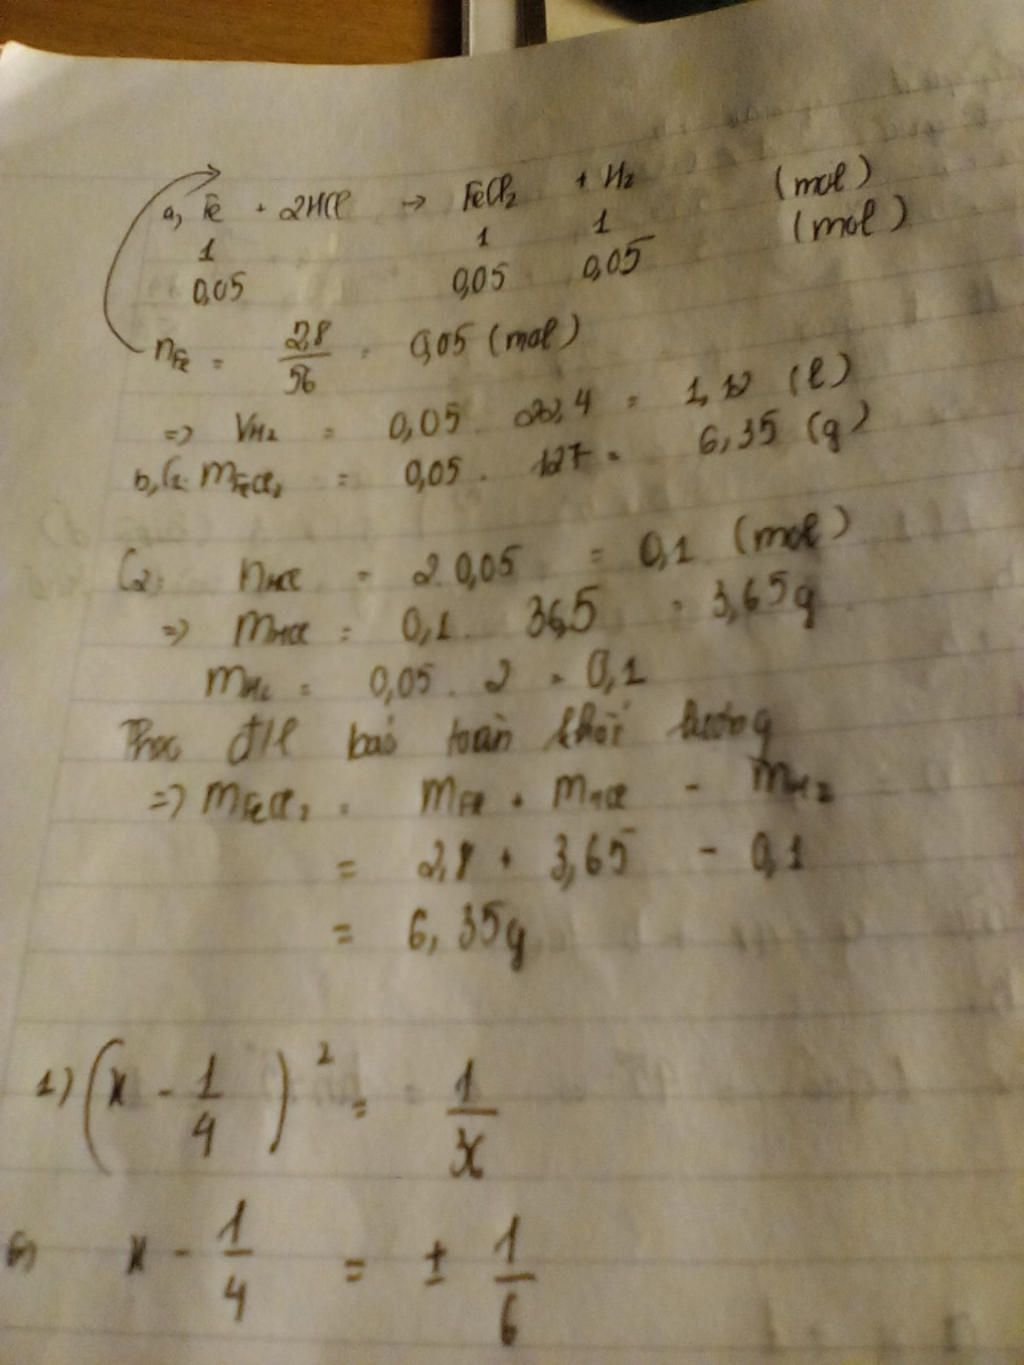 a, Fe + 2HCl → FeCl₂ + H₂ (mol)
1 1 1 (mol)
0,05 0,05 0,05
nFe = 2,8/56 = 0,05 (mol)
=> VH₂ = 0,05 . 22,4 = 1,12 (l)
b, C₁: mFeCl₂ = 0,05 . 127 = 6,35 (g)
C₂: nHCl = 2.0,05 = 0,1 (mol)
=> mHCl = 0,1 . 36,5 = 3,65g
mH₂ = 0,05 . 2 = 0,1
Theo đ/l bảo toàn khối lượng
=> mFeCl₂ = mFe + mHCl - mH₂
= 2,8 + 3,65 - 0,1
= 6,35g
1) (x - 1/4)² = 1/36
x - 1/4 = ± 1/6